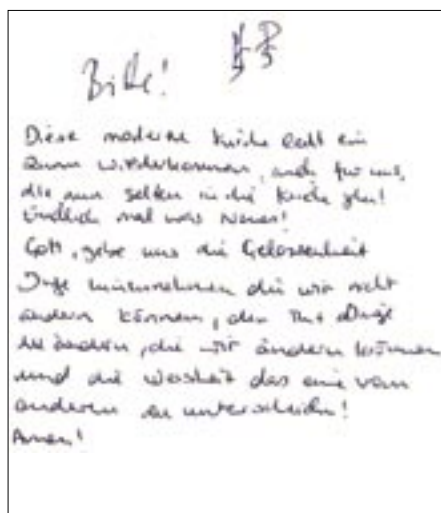 Bitte!
Diese moderne Kirche lädt ein
zum wiederkommen, auch für uns,
die nur selten in die Kirche gehn!
Endlich mal was Neues!
Gott, gebe uns die Gelassenheit
Dinge hinzunehmen die wir nicht
ändern können, den Mut Dinge
zu ändern, die wir ändern können
und die Weisheit das eine vom
anderen zu unterscheiden!
Amen!